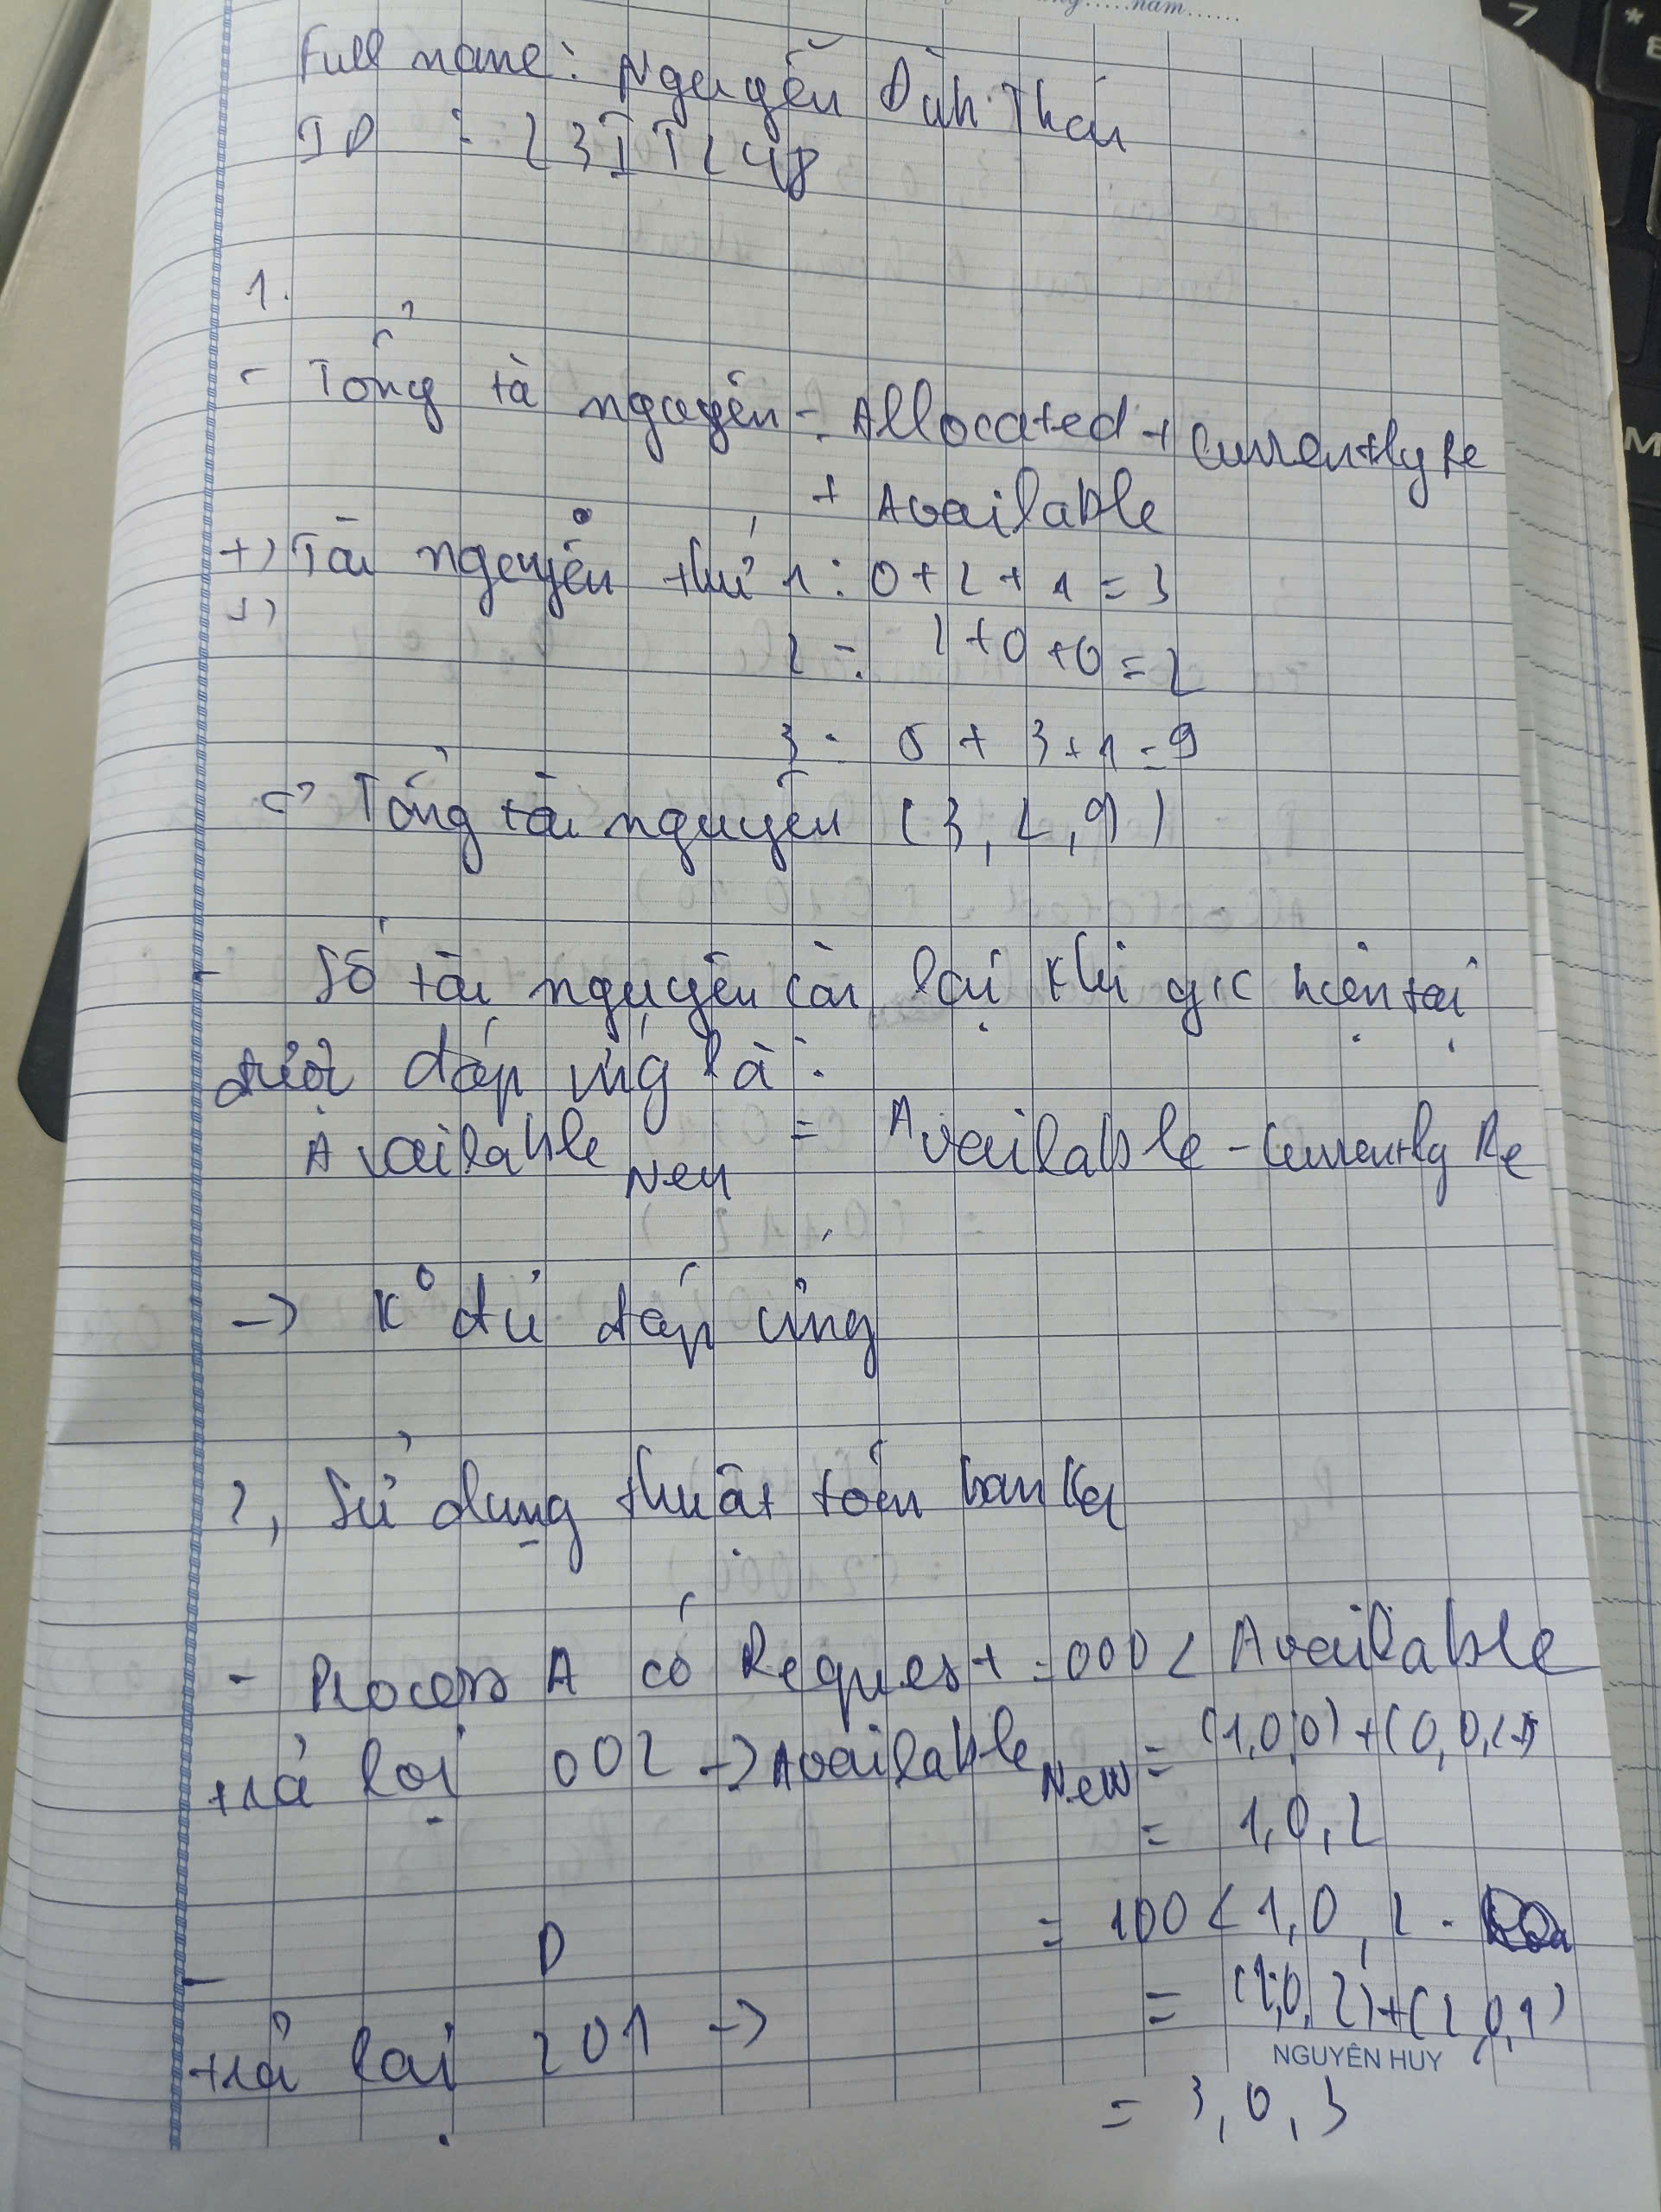 năm......
Full name: Nguyễn Đình Thái
ID : 23IT248
1.
- Tổng tà nguyên = Allocated + Currently Re
+ Available
+) Tài nguyên thứ 1 : 0 + 2 + 1 = 3
2 = 2 + 0 + 0 = 2
3 : 5 + 3 + 1 = 9
=> Tổng tài nguyên (3, 2, 9)
- Số tài nguyên còn lại khi y/c hiện tại
được đáp ứng là :
Available New = Available - Currently Re
-> K° đủ đáp ứng
2, Sử dụng thuật toán banker
- Process A có Request = 000 < Available
trả lại 002 -> Available New = (1,0,0) + (0,0,2)
= 1,0,2
- D = 100 < 1,0,2
trả lại 201 -> = (1,0,2) + (2,0,1)
NGUYÊN HUY
= 3,0,3